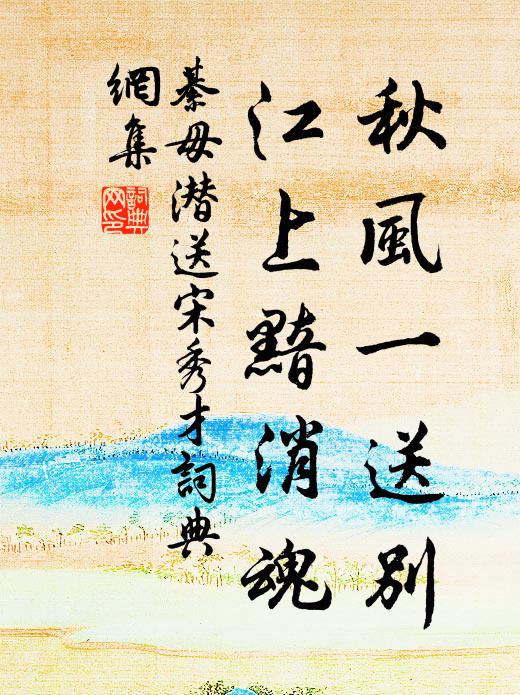 秋風一送別
江上黯消魂
綦毋潜送宋秀才詞典
網集
詞典
网印